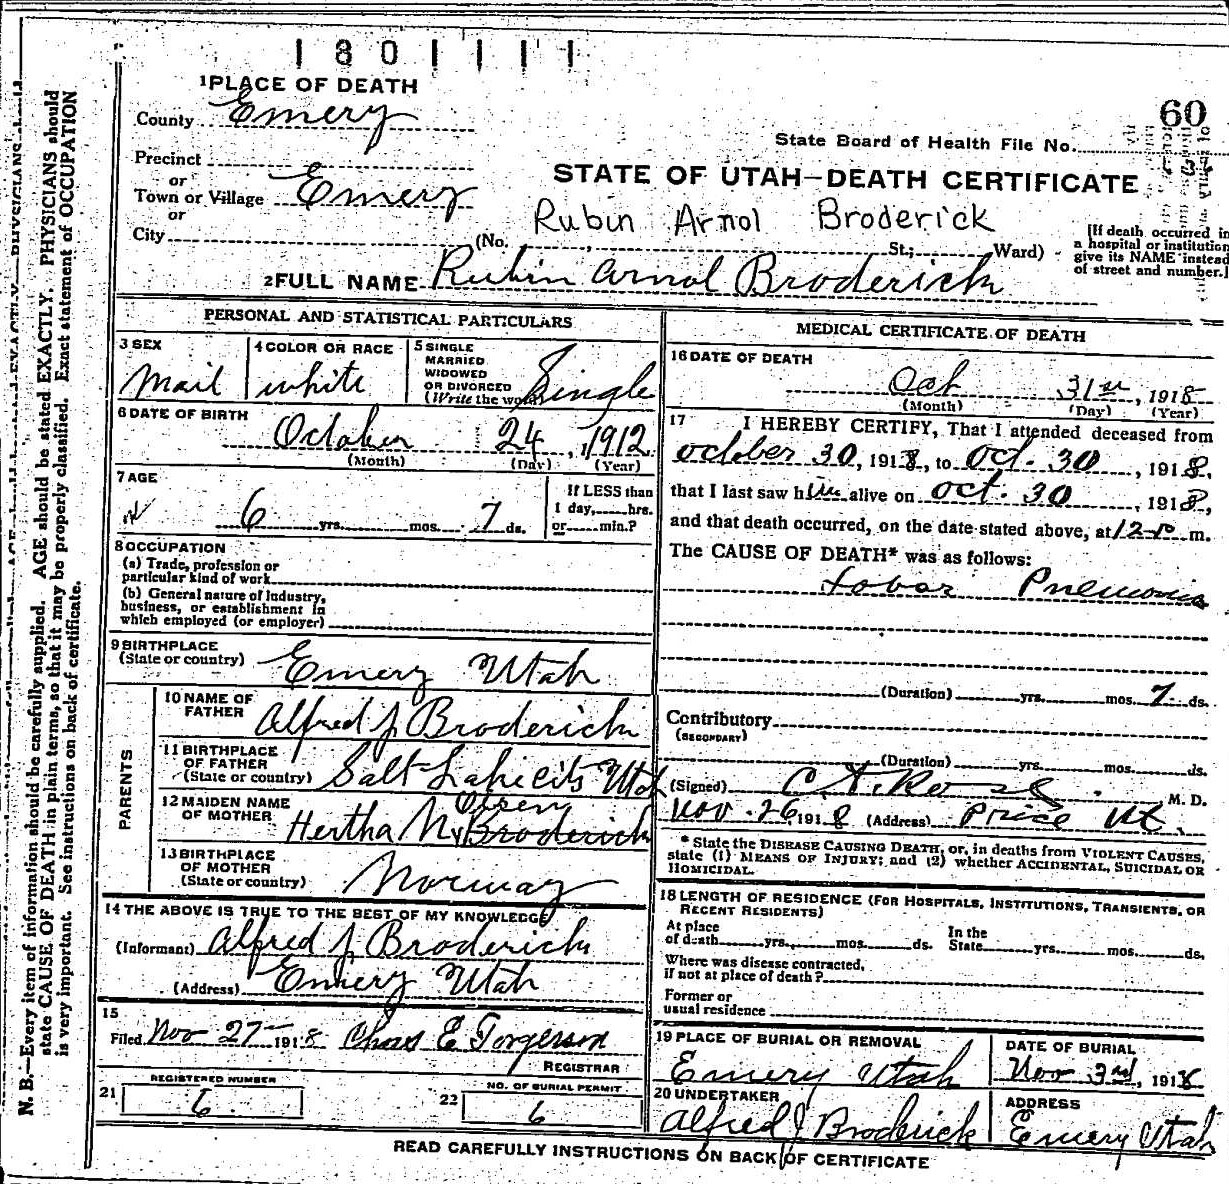 1801111
1 PLACE OF DEATH
County Emery
60
State Board of Health File No.
Precinct
or
Town or Village Emery
STATE OF UTAH—DEATH CERTIFICATE
or
Rubin Arnol Broderick
City
(No. St.; Ward)
[If death occurred in
a hospital or institution
give its NAME instead
of street and number.]
2 FULL NAME Rubin Arnol Broderick
PERSONAL AND STATISTICAL PARTICULARS
3 SEX
Mail
4 COLOR OR RACE
white
5 SINGLE
MARRIED
WIDOWED
OR DIVORCED
(Write the word)
Single
6 DATE OF BIRTH
October 24, 1912
(Month) (Day) (Year)
7 AGE
6 yrs. mos. 7 ds.
If LESS than
1 day, hrs.
or min.?
8 OCCUPATION
(a) Trade, profession or
particular kind of work
(b) General nature of Industry,
business, or establishment in
which employed (or employer)
9 BIRTHPLACE
(State or country) Emery Utah
PARENTS
10 NAME OF
FATHER Alfred J Broderick
11 BIRTHPLACE
OF FATHER
(State or country) Salt Lake City Utah
12 MAIDEN NAME
OF MOTHER
Olsen
Hertha N Broderick
13 BIRTHPLACE
OF MOTHER
(State or country) Norway
14 THE ABOVE IS TRUE TO THE BEST OF MY KNOWLEDGE
(Informant) Alfred J Broderick
(Address) Emery Utah
15
Filed Nov 27 1918 Chas E Torgerson
REGISTRAR
21 REGISTERED NUMBER
6
22 NO. OF BURIAL PERMIT
6
MEDICAL CERTIFICATE OF DEATH
16 DATE OF DEATH
Oct 31st, 1918
(Month) (Day) (Year)
17 I HEREBY CERTIFY, That I attended deceased from
october 30, 1918, to oct. 30, 1918,
that I last saw him alive on oct. 30, 1918,
and that death occurred, on the date stated above, at 12 m.
The CAUSE OF DEATH* was as follows:
Lobar Pnemonia
(Duration) yrs. mos. 7 ds.
Contributory
(SECONDARY)
(Duration) yrs. mos. ds.
(Signed) M. D.
Nov. 26, 1918 (Address) Price Ut.
* State the DISEASE CAUSING DEATH, or, in deaths from VIOLENT CAUSES,
state (1) MEANS OF INJURY; and (2) whether ACCIDENTAL, SUICIDAL OR
HOMICIDAL.
18 LENGTH OF RESIDENCE (FOR HOSPITALS, INSTITUTIONS, TRANSIENTS, OR
RECENT RESIDENTS)
At place
of death yrs. mos. ds.
In the
State yrs. mos. ds.
Where was disease contracted,
if not at place of death?
Former or
usual residence
19 PLACE OF BURIAL OR REMOVAL
Emery Utah
DATE OF BURIAL
Nov 3rd, 1918
20 UNDERTAKER
Alfred J Broderick
ADDRESS
Emery Utah
READ CAREFULLY INSTRUCTIONS ON BACK OF CERTIFICATE
N. B.—Every item of information should be carefully supplied. AGE should be stated EXACTLY. PHYSICIANS should
state CAUSE OF DEATH in plain terms, so that it may be properly classified. Exact statement of OCCUPATION
is very important. See instructions on back of certificate.